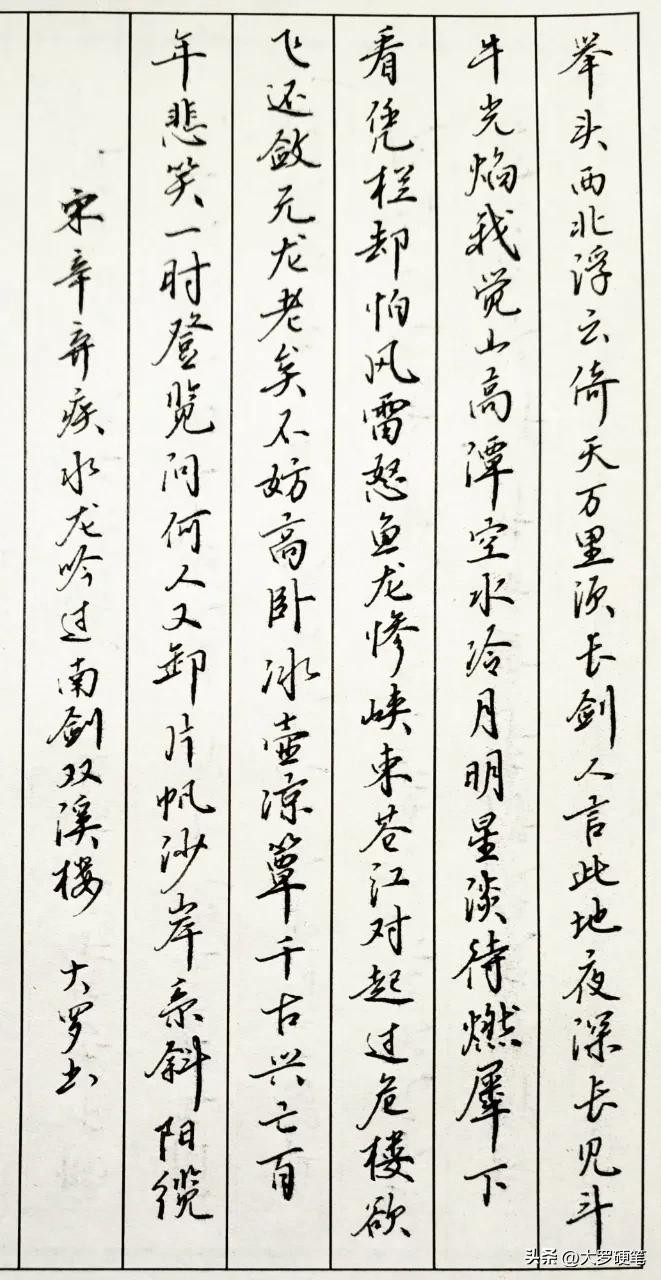 举头西北浮云倚天万里须长剑人言此地夜深长见斗
牛光焰我觉山高潭空水冷月明星淡待燃犀下
看凭栏却怕风雷怒鱼龙惨峡束苍江对起过危楼欲
飞还敛元龙老矣不妨高卧冰壶凉簟千古兴亡百
年悲笑一时登览问何人又卸片帆沙岸系斜阳缆
宋辛弃疾水龙吟过南剑双溪楼 大罗书
头条 @大罗硬笔